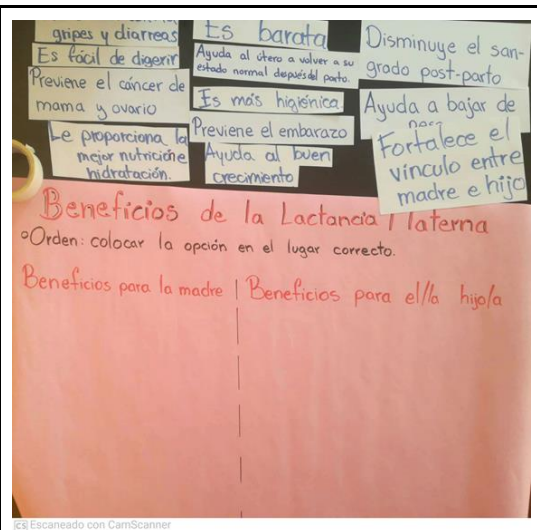 gripes y diarreas
Es fácil de digerir
Previene el cáncer de
mama y ovario
Le proporciona la
mejor nutrición e
hidratación.
Es barata
Ayuda al útero a volver a su
estado normal después del parto.
Es más higiénica.
Previene el embarazo
Ayuda al buen
crecimiento
Disminuye el san-
grado post-parto
Ayuda a bajar de
Fortalece el
vínculo entre
madre e hijo
Beneficios de la Lactancia Materna
Orden: colocar la opción en el lugar correcto.
Beneficios para la madre | Beneficios para el/la hijo/a
CS Escaneado con CamScanner